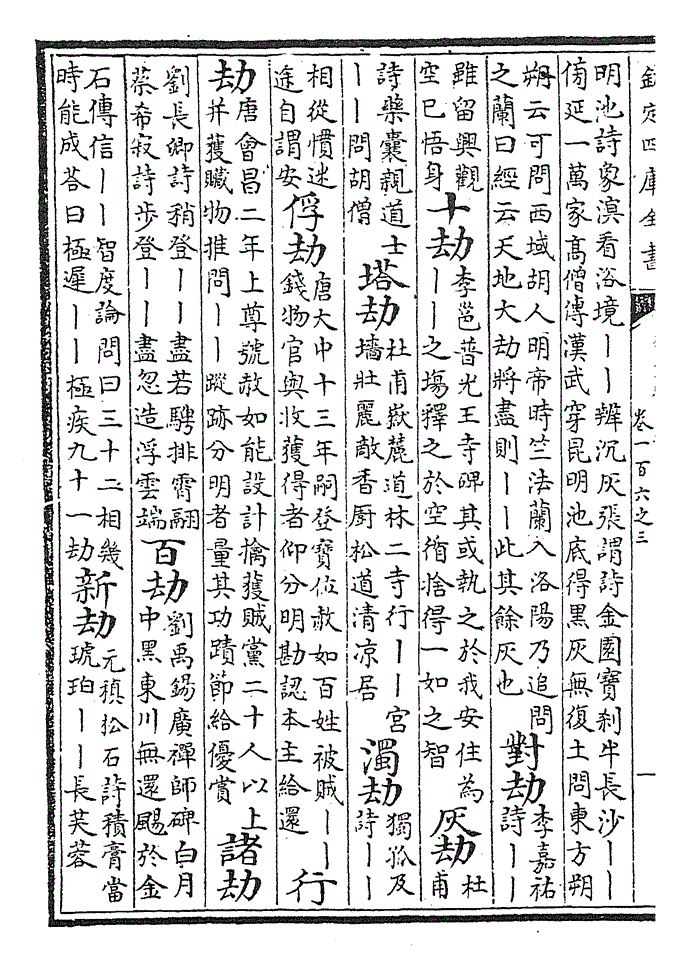 欽定四庫全書 卷一百六之三 一
明池詩象溟看浴境丨丨辨沉灰張謂詩金園寶刹半長沙丨丨
傍延一萬家髙僧傳漢武穿昆明池底得黑灰無復土問東方朔
朔云可問西域胡人明帝時竺法蘭入洛陽乃追問
之蘭曰經云天地大劫將盡則丨丨此其餘灰也
對劫
李嘉祐
詩丨丨
雖留興觀
空已悟身
十劫
李邕普光王寺碑其或執之於我安住為
丨丨之塲釋之於空循捨得一如之智
灰劫
杜
甫
詩藥囊親道士
丨丨問胡僧
塔劫
杜甫嶽麓道林二寺行丨丨宮
墻壯麗敵香厨松道清凉居
濁劫
獨孤及
詩丨丨
相從慣迷
途自謂安
俘劫
唐大中十三年嗣登寶位赦如百姓被賊丨丨
錢物官與收獲得者仰分明勘認本主給還
行
劫
唐會昌二年上尊號赦如能設計擒獲賊黨二十人以上
并獲贓物推問丨丨蹤跡分明者量其功蹟節給優賞
諸劫
劉長卿詩稍登丨丨盡若騁排霄翮
蔡希寂詩步登丨丨丨盡忽造浮雲端
百劫
劉禹錫廣禪師碑白月
中黑東川無還颺於金
石傳信丨丨智度論問曰三十二相幾
時能成荅曰極遲丨丨極疾九十一劫
新劫
元稹松石詩積膏當
琥珀丨丨長芙蓉